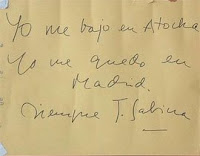 Yo me bajo en Atocha
Yo me quedo en
Madrid.
Siempre J. Sabina